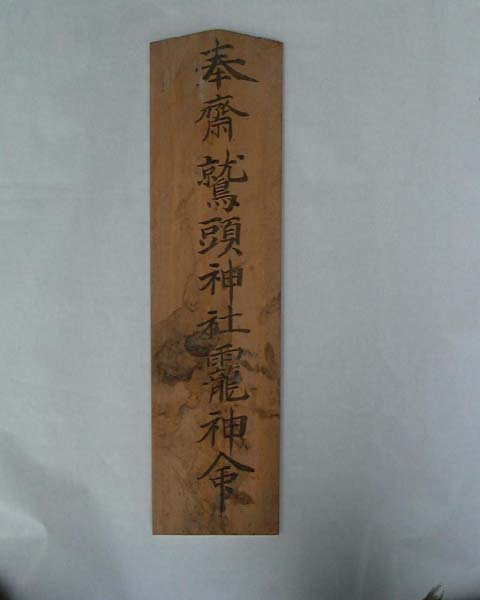 奉齋鷲頭神社靇神命